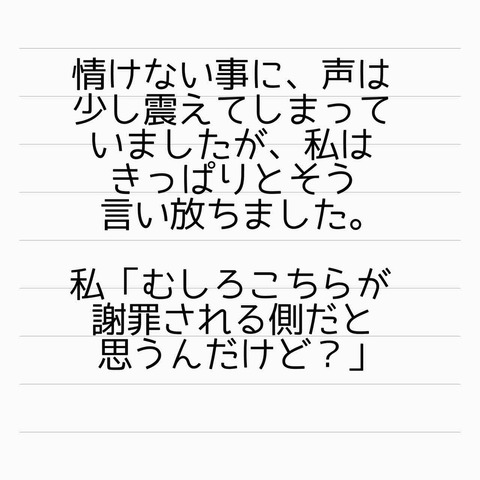 情けない事に、声は
少し震えてしまって
いましたが、私は
きっぱりとそう
言い放ちました。
私「むしろこちらが
謝罪される側だと
思うんだけど？」